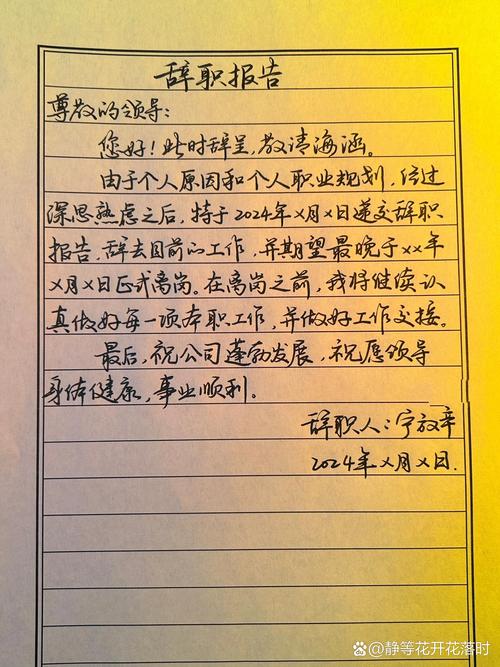 辞职报告
尊敬的领导：
您好！此时辞呈，敬请海涵。
由于个人原因和个人职业规划，经过
深思熟虑之后，特于2024年X月X日递交辞职
报告，辞去目前的工作，并期望最晚于XX年
X月X日正式离岗。在离岗之前，我将继续认
真做好每一项本职工作，并做好工作交接。
最后，祝公司蓬勃发展，祝愿领导
身体健康，事业顺利。
辞职人：宁致辛
2024年X月X日.
@静等花开花落时